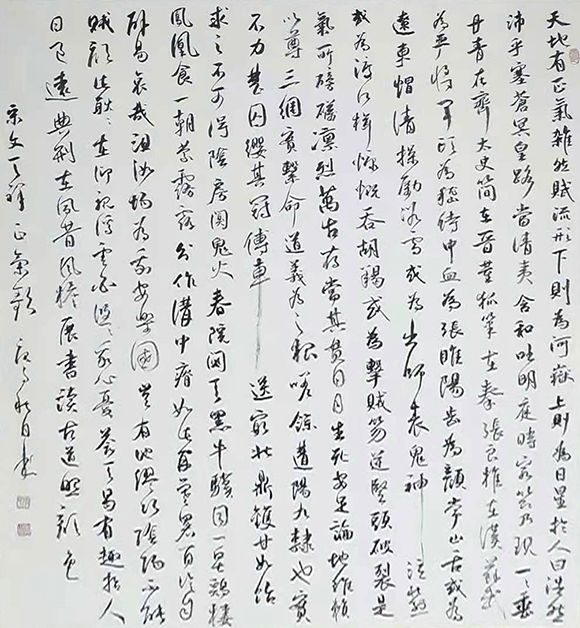 天地有正氣雜然賦流形下則為河嶽上則為日星於人曰浩然
沛乎塞蒼冥皇路當清夷含和吐明庭時窮節乃現一一垂
丹青在齊太史簡在晉董狐筆在秦張良椎在漢蘇武
為嚴將軍頭為嵇侍中血為張睢陽齒為顏常山舌或為
遼東帽清操勵冰雪或為出師表鬼神泣烈
或為渡江楫慷慨吞胡羯或為擊賊笏逆豎頭破裂是
氣所磅礴凜烈萬古存當其貫日月生死安足論地維賴
以尊三綱實繫命道義為之根嗟余遘陽九隸也實
不力楚囚纓其冠傳車送窮北鼎鑊甘如飴
求之不可得陰房闃鬼火春院閟天黑牛驥同一皁雞棲
鳳凰食一朝蒙霧露分作溝中瘠如此再寒暑百沴自
辟易哀哉沮洳場為我安樂國豈有他繆巧陰陽不能
賊顧此耿耿在仰視浮雲白悠悠我心憂蒼天曷有極哲人
日已遠典刑在夙昔風檐展書讀古道照顏色
宋文天祥正氣歌秋日書